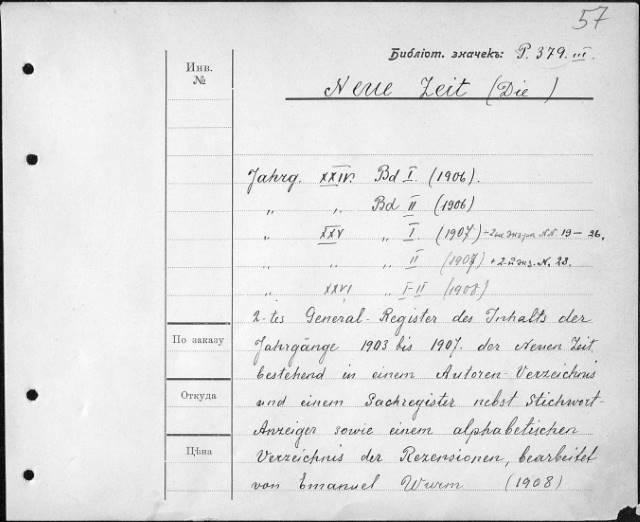 57
Библіот. значекъ: P. 379. III.
Инв.
№
Neue Zeit (Die)
Jahrg. XXIV. Bd I. (1906).
„ „ Bd II (1906)
„ XXV „ I. (1907) - 2ые экз. N.N. 19 - 26.
„ „ „ II (1907) + 2й экз. N. 28.
„ XXVI „ I-II (1908)
2-tes General-Register des Inhalts der
По заказу
Jahrgänge 1903 bis 1907. der Neuen Zeit
bestehend in einem Autoren-Verzeichnis
Откуда
und einem Sachregister nebst Stichwort-
Anzeiger sowie einem alphabetischen
Цѣна
Verzeichnis der Rezensionen, bearbeitet
von Emanuel Wurm (1908)